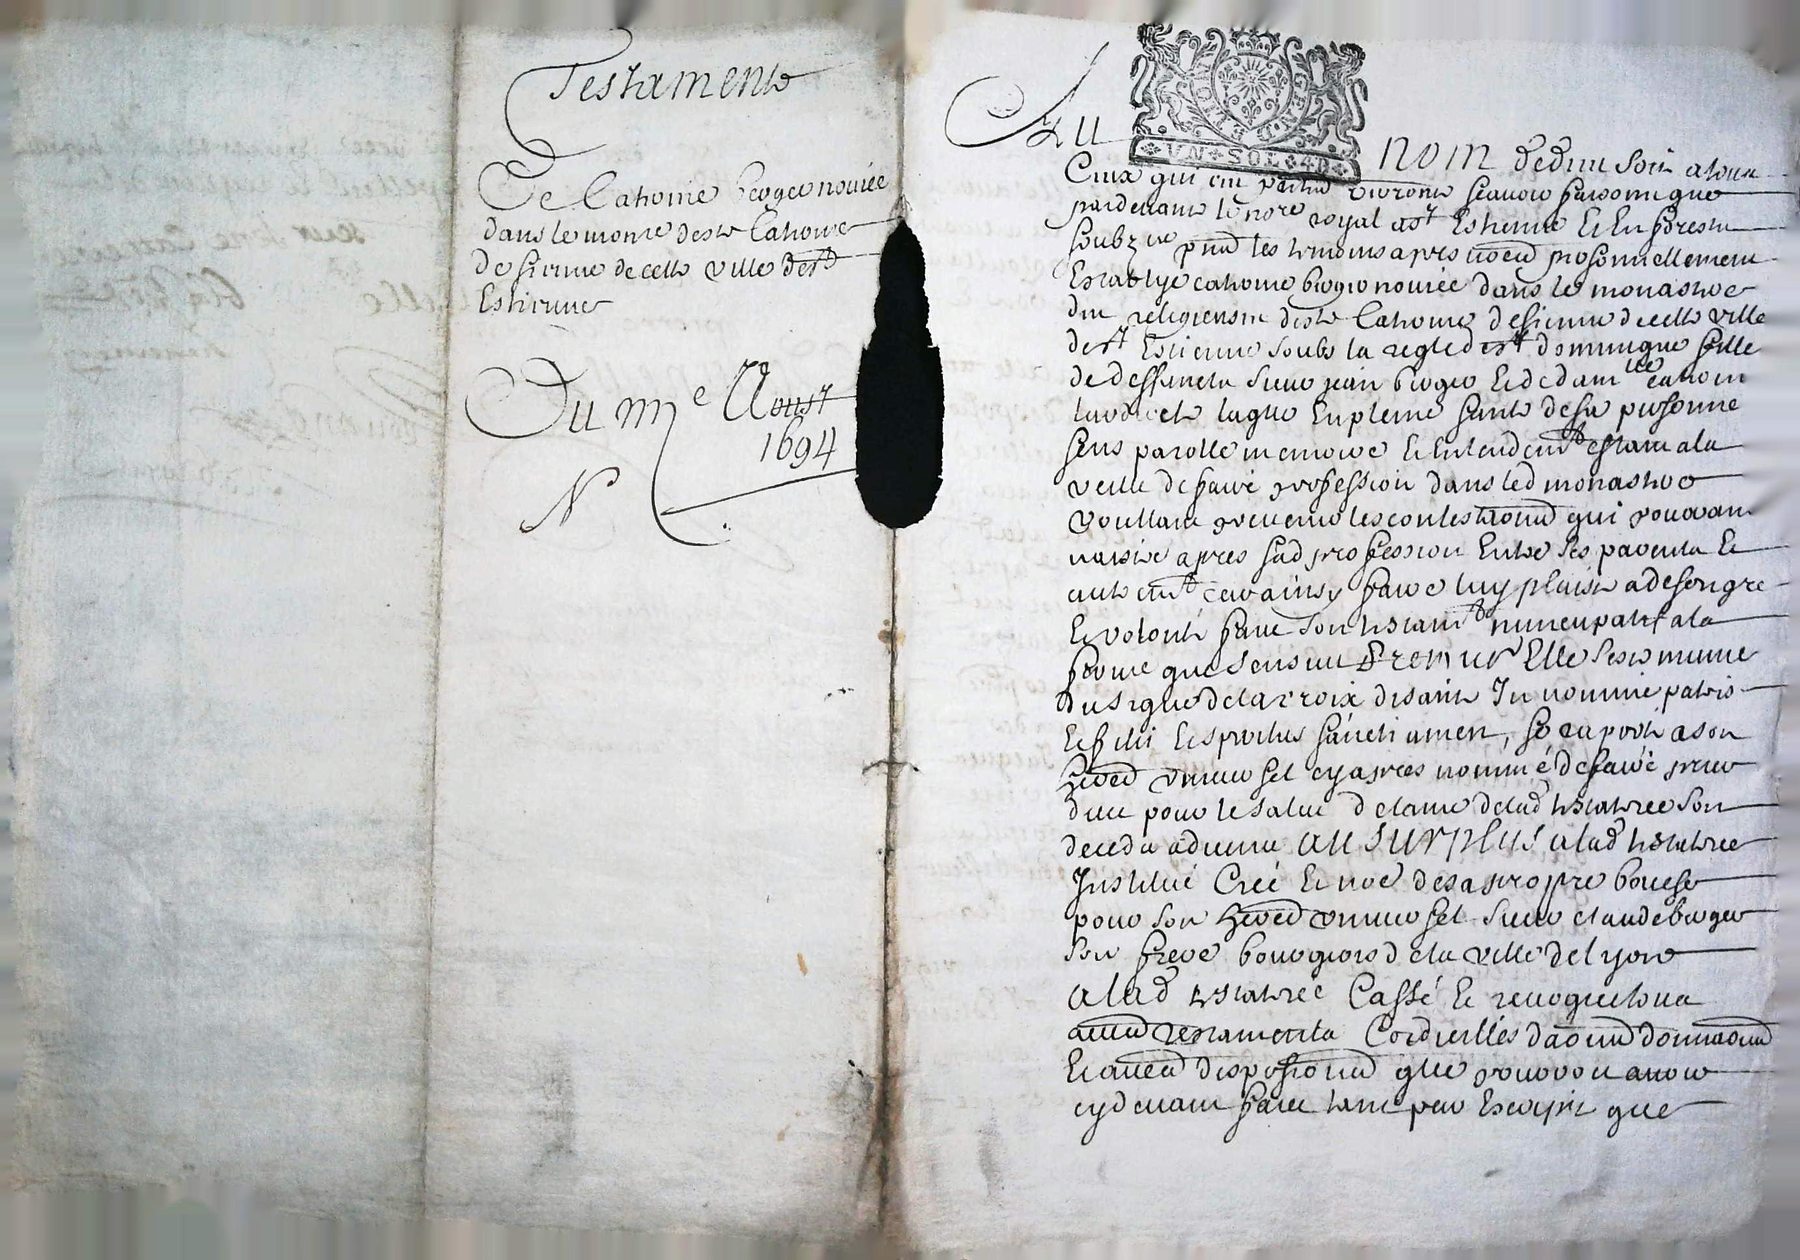 Testament
De Catherine Berger novice
dans le monre de ste Catherine
de sienne de cette ville de st
Estienne
Du me Aoust
1694
N
GNERALITE D LION
VN SOL 4D
Au nom de dieu soit a tous
Ceux qui ces verront scavoir faisons que
pardevant le nore royal a st Estienne
soubzne les tesmoins apres personnellement
Establye catherine berger novice dans le monastere
des religieuses de ste Catherine de sienne de cette ville
de st Estienne soubs la regle de st dominique fille
de deffunctz sieur jean berger et de dam lle
laquelle en pleine sante de sa personne
sens parolle memoire et entendemt estant a la
veille de faire profession dans led monastere
voullant prevenir les contestaons qui pourroint
naistre apres sad profession entre ses parents et
de son gre
et volonte faict son testamt nuncupatif a la
forme que sensuit Premier Elle sest munie
du signe de la croix disant In nomine patris
et filii et spiritus sancti amen, se raporte a son
hered universel cy apres nommé de faire prier
dieu pour le salut de lame de lad testatrice son
deceds advenu au surplus a lad testatrice
Institué Créé et nomé de sa propre bouche
pour son hered universel sieur claude berger
son frere bourgeois de la ville de lyon
a lad testatrice Cassé et revoque tous
autres testaments Codicilles donnaons
et autres dispositions que pourroit avoir
cy devant faict tant par escript que